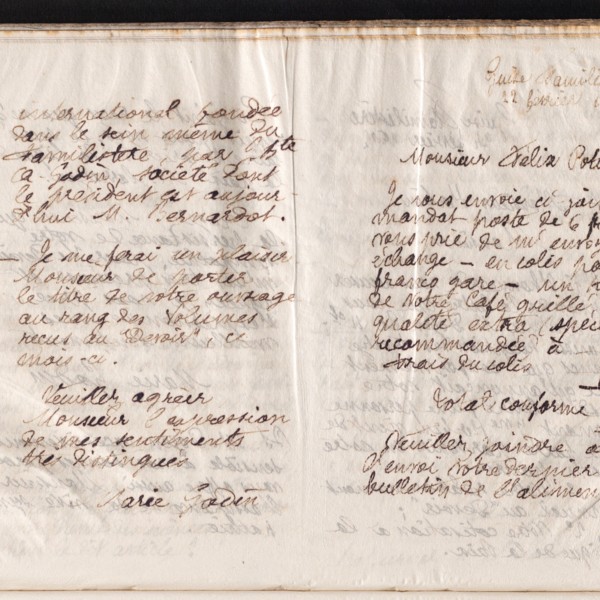 international fondée
dans le sein même du
Familistère, par J. Bte
A. Godin, société dont
le président est aujour-
d'hui M. Bernardot.
— Je me ferai un plaisir
Monsieur de porter
le titre de votre ouvrage
au rang des volumes
reçus au "Devoir", ce
mois-ci.
Veuillez agréer
Monsieur l'expression
de mes sentiments
très distingués
Marie Godin
Guise Famili
22 février
Monsieur Félix Pot
Je vous envoie ci join
mandat poste de 6 f
vous prie de m'envoy
échange — en colis po
franco gare — un
de votre Café grillé
qualité extra (spéc
recommandée à
frais du colis
Total conforme
Veuillez joindre à
l'envoi votre dernier
bulletin de l'alimen